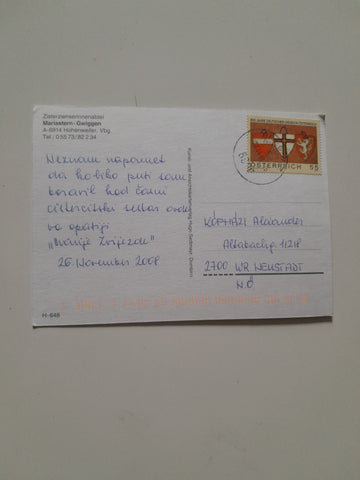 Zisterzienserinnenabtei
Mariastern-Gwiggen
A-6914 Hohenweiler, Vbg.
Tel.: 0 55 73 / 82 2 34
Neznam napamet
da koliko puti sam
boravil kod časni
cistercitski sestar
vo opatiji
„Marije Zvijezde"
26. November 2008
Kunst- und Ansichtskartenverlag
ÖSTERREICH 55
KÓPHÁZI Alexander
2700 WR. NEUSTADT
N.Ö.
H-648